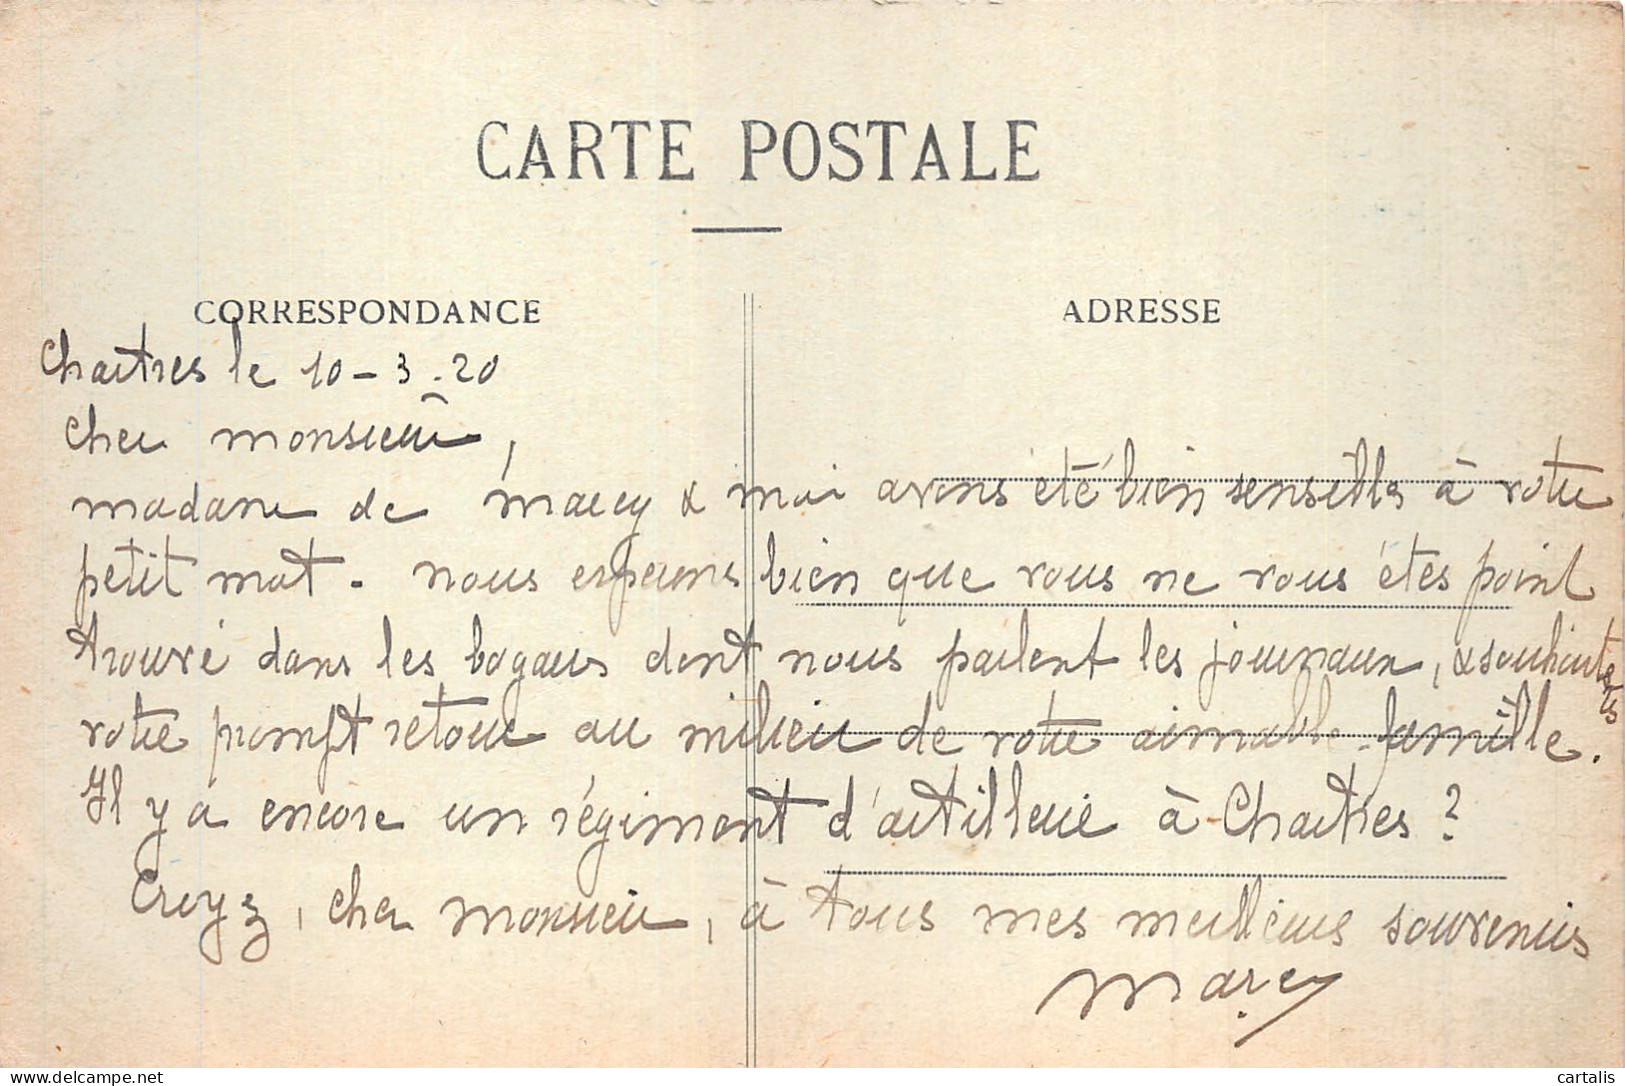 CARTE POSTALE
CORRESPONDANCE
ADRESSE
Chartres le 10-3-20
Cher monsieur,
madame de Marcy & moi avons été bien sensibles à votre
petit mot. nous espérons bien que vous ne vous êtes point
trouvé dans les bagarres dont nous parlent les journaux, & souhaitons
votre prompt retour au milieu de votre aimable famille.
Il y a encore un régiment d'artillerie à Chartres ?
Croyez, cher monsieur, à tous mes meilleurs souvenirs
Marcy
cartalis